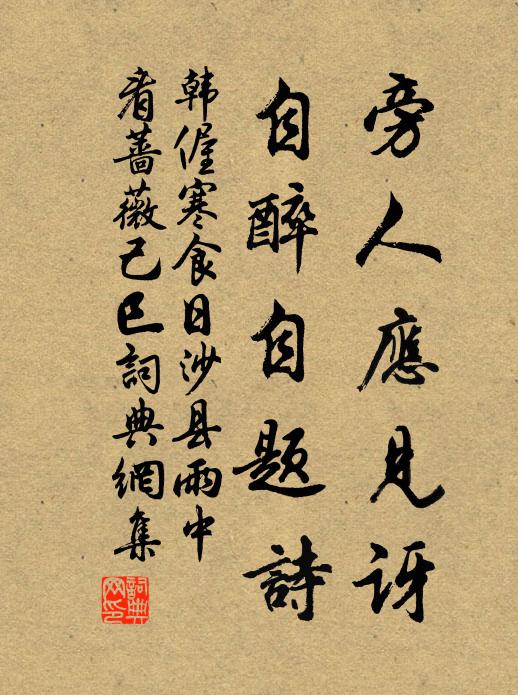 旁人應見訝
自醉自題詩
韩偓寒食日沙县雨中
看蔷薇己巳詞典網集
詞典网印